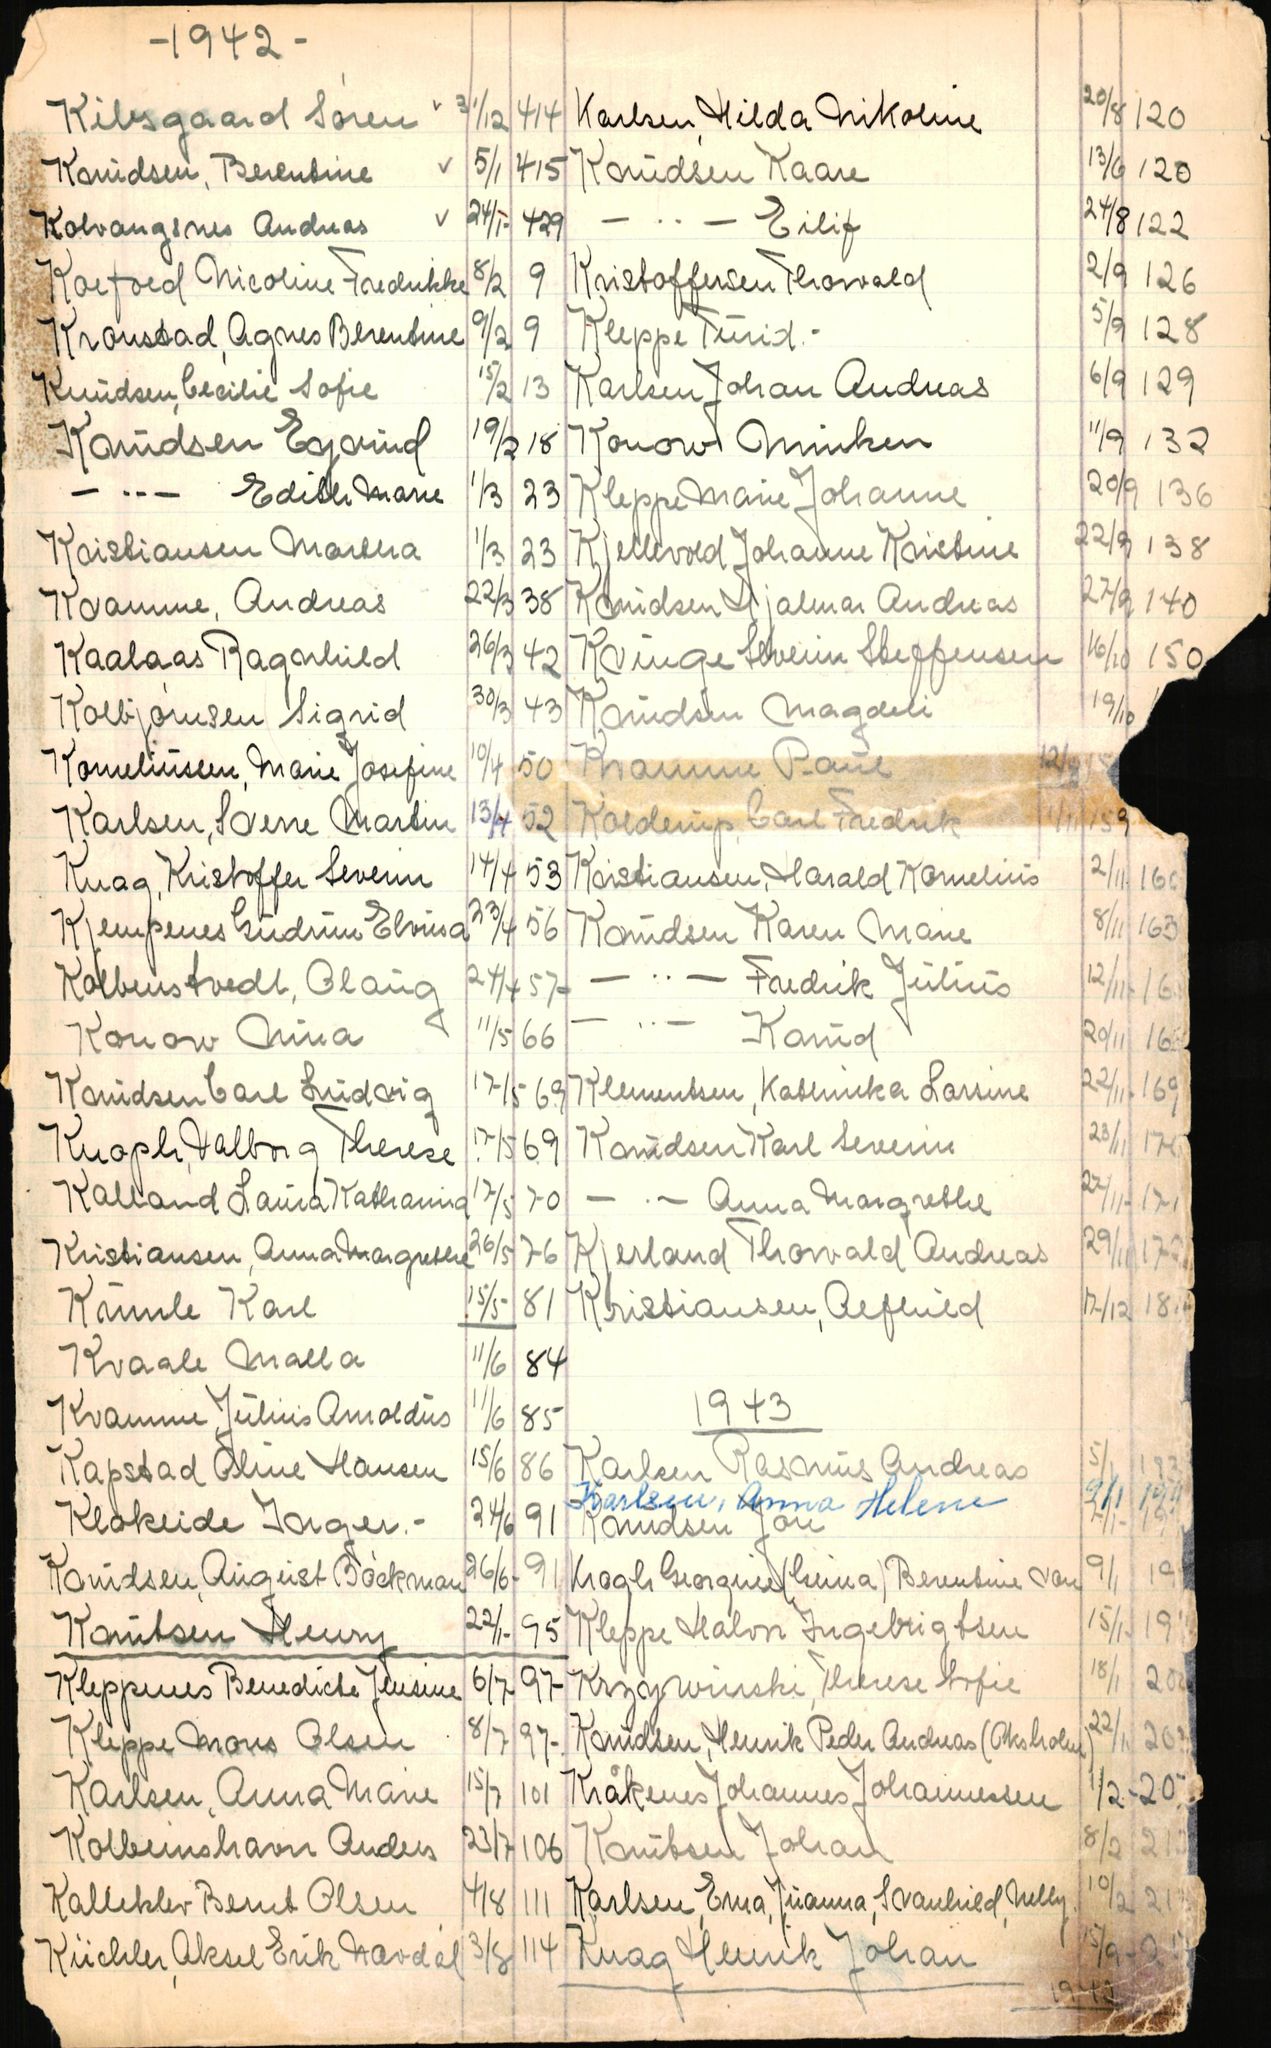 -1942-
Kilsgaard Sören ✓ 31/12 414
Knudsen, Berentine ✓ 5/1 415
Kolvangsnes Andreas ✓ 24/1- 429
Koefoed Nicoline Fredrikke 8/2 9
Kronstad, Agnes Berentine 9/2 9
Knudsen, Cecilie Sofie 15/2 13
Knudsen Eyvind 19/2 18
— ·· — Edith Marie 1/3 23
Kristiansen Martha 1/3 23
Kvamme, Andreas 22/3 38
Kaalaas Ragnhild 26/3 42
Kolbjørnsen Sigrid 30/3 43
Korneliussen, Marie Josefine 10/4 50
Karlsen, Sverre Martin 13/4 52
Knag, Kristoffer Severin 14/4 53
Kjempenes Gudrun Elvina 23/4 56
Kolbenstvedt, Olaug 24/4 57-
Konow Nina 11/5 66
Knudsen Carl Ludvig 17/5 69
Knoph, Valborg Therese 17/5 69
Kalland Laura Katharina 17/5 70
Kristiansen, Anna Margrethe 26/5 76
Krumle Karl 15/5- 81
Kvaale Malla 11/6 84
Kvamme, Julius Arnoldus 11/6 85
Kapstad Oline Hansen 15/6 86
Klokeide Inger.- 24/6 91
Knudsen, August Böckman 26/6- 91
Knutsen Henry 22/1- 95
Kleppenes Benedicte Jensine 6/7 97-
Kleppe Mons Olsen 8/7 97-
Karlsen, Anna Marie 15/7 101
Kolbeinshavn Anders 23/7 106
Kalleklev Bernt Olsen 4/8 111
Küchler, Aksel Erik Navdal 3/8 114
Karlsen, Hilda Nikoline 20/8 120
Knudsen Kaare 13/6 120
— ·· — Eilif 24/8 122
Kristoffersen Thorvald 2/9 126
Kleppe Turid.- 5/9 128
Karlsen Johan Andreas 6/9 129
Konow Minken 11/9 132
Kleppe Marie Johanne 20/9 136
Kjellevold Johanne Kristine 22/9 138
Knudsen Hjalmar Andreas 27/9 140
Kvinge Severin Steffensen 16/10 150
Knudsen Magdeli 19/10
Kvamme Paul
Kolderup, Carl Fredrik 1/11 159
Kristiansen, Harald Kornelius 2/11- 160
Knudsen Karen Marie 8/11 163
— ·· — Fredrik Julius 12/11-
— ·· — Knud 20/11
Klementsen, Kathinka Lovise 22/11- 169
Knudsen Karl Severin 23/11
— ·· — Anna Margrethe 27/11- 171
Kjerland Thorvald Andreas 29/11 172
Kristiansen, Alfhild 17/12
1943
Karlsen Rasmus Andreas 5/1
Karlsen, Anna Helene 9/1
Knudsen Jon
Krogh Georgine (Guina) Berentine von 9/1
Kleppe Halvor Ingebrigtsen 15/1-
Krzywinski, Therese Sofie 18/1
Knudsen, Henrik Peder Andreas 22/1
Kråkenes Johannes Johannessen 1/2-
Knutsen Johan 8/2
Karlsen, Erna, Juanna, Svanhild, Nelly. 10/2
Knag Henrik Johan 15/9-
1942